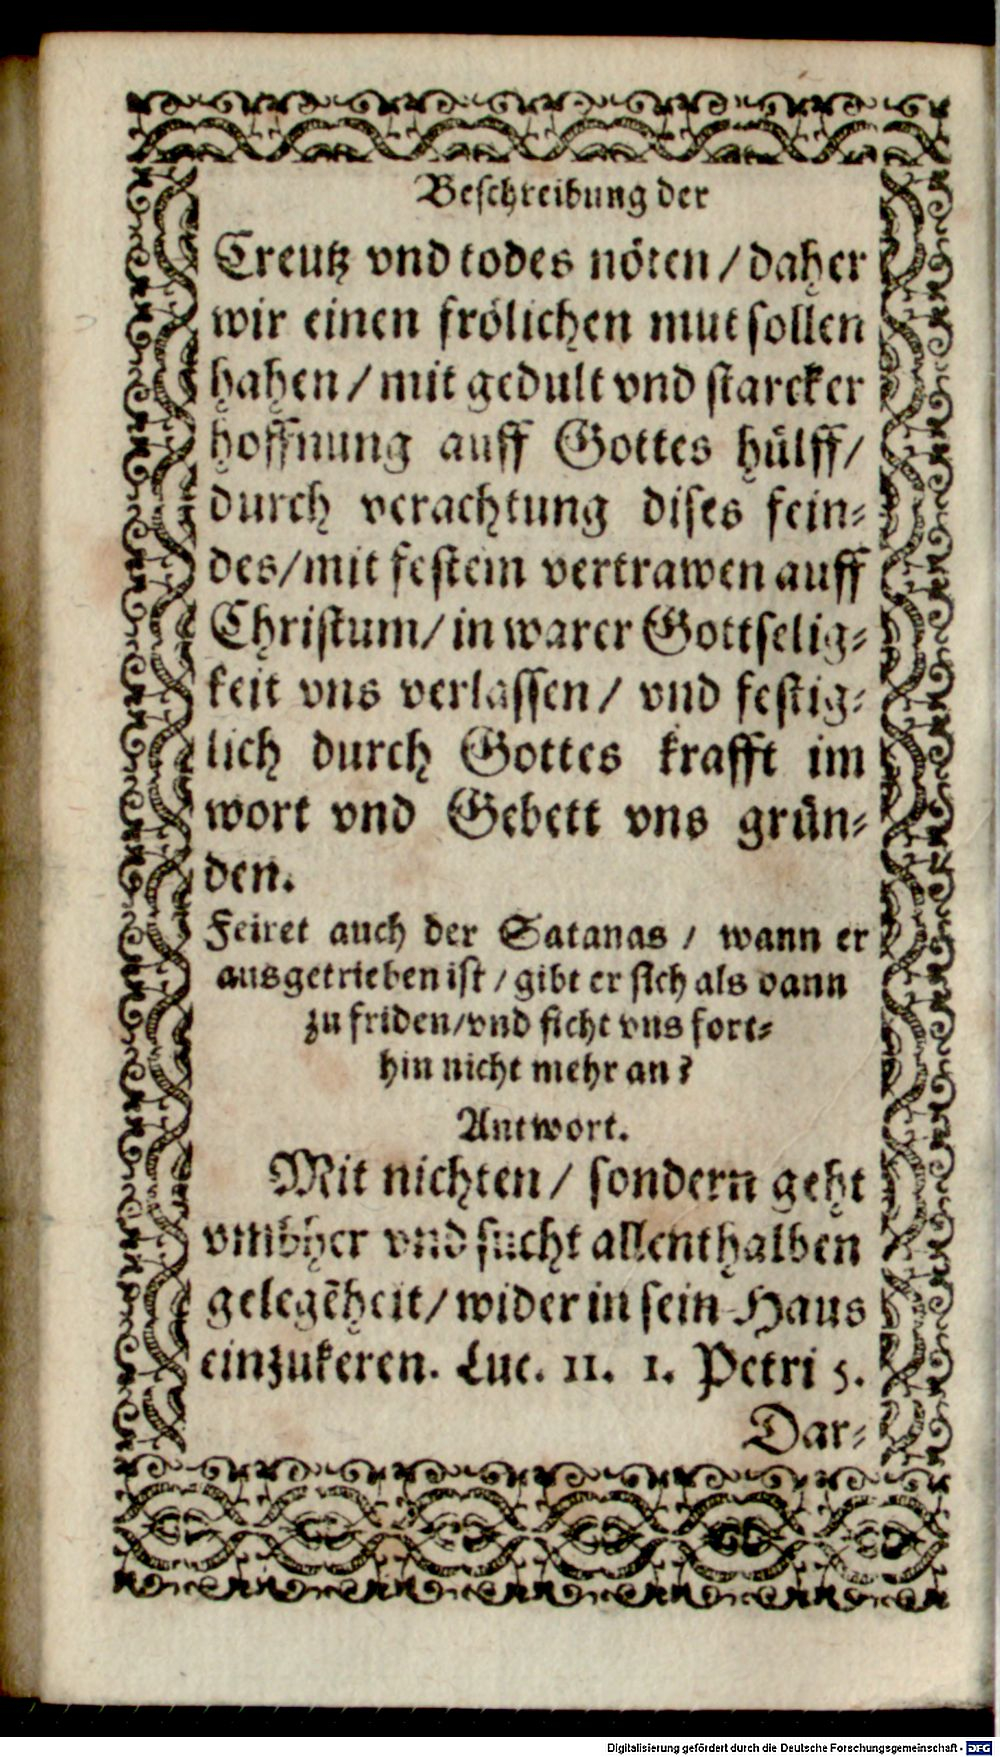 Beschreibung der
Creutz vnd todes nöten / daher
wir einen frölichen mut sollen
hahen / mit gedult vnd starcker
hoffnung auff Gottes hülff /
durch verachtung dises fein⸗
des / mit festem vertrawen auff
Christum / in warer Gottselig⸗
keit vns verlassen / vnd festig⸗
lich durch Gottes krafft im
wort vnd Gebett vns grün⸗
den.
Feiret auch der Satanas / wann er
ausgetrieben ist / gibt er sich als dann
zu friden / vnd ficht vns fort⸗
hin nicht mehr an?
Antwort.
Mit nichten / sondern geht
vmbher vnd sucht allenthalben
gelegẽheit / wider in sein Haus
einzukeren. Luc. 11. 1. Petri 5.
Dar⸗
Digitalisierung gefördert durch die Deutsche Forschungsgemeinschaft - DFG